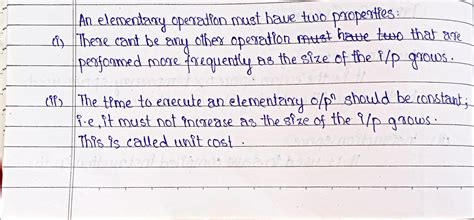 An elementary operation must have two properties:
(i) There cant be any other operation must have two that are
performed more frequently as the size of the i/p grows.
(ii) The time to execute an elementary o/pⁿ should be constant,
i.e, it must not increase as the size of the i/p grows.
This is called unit cost.